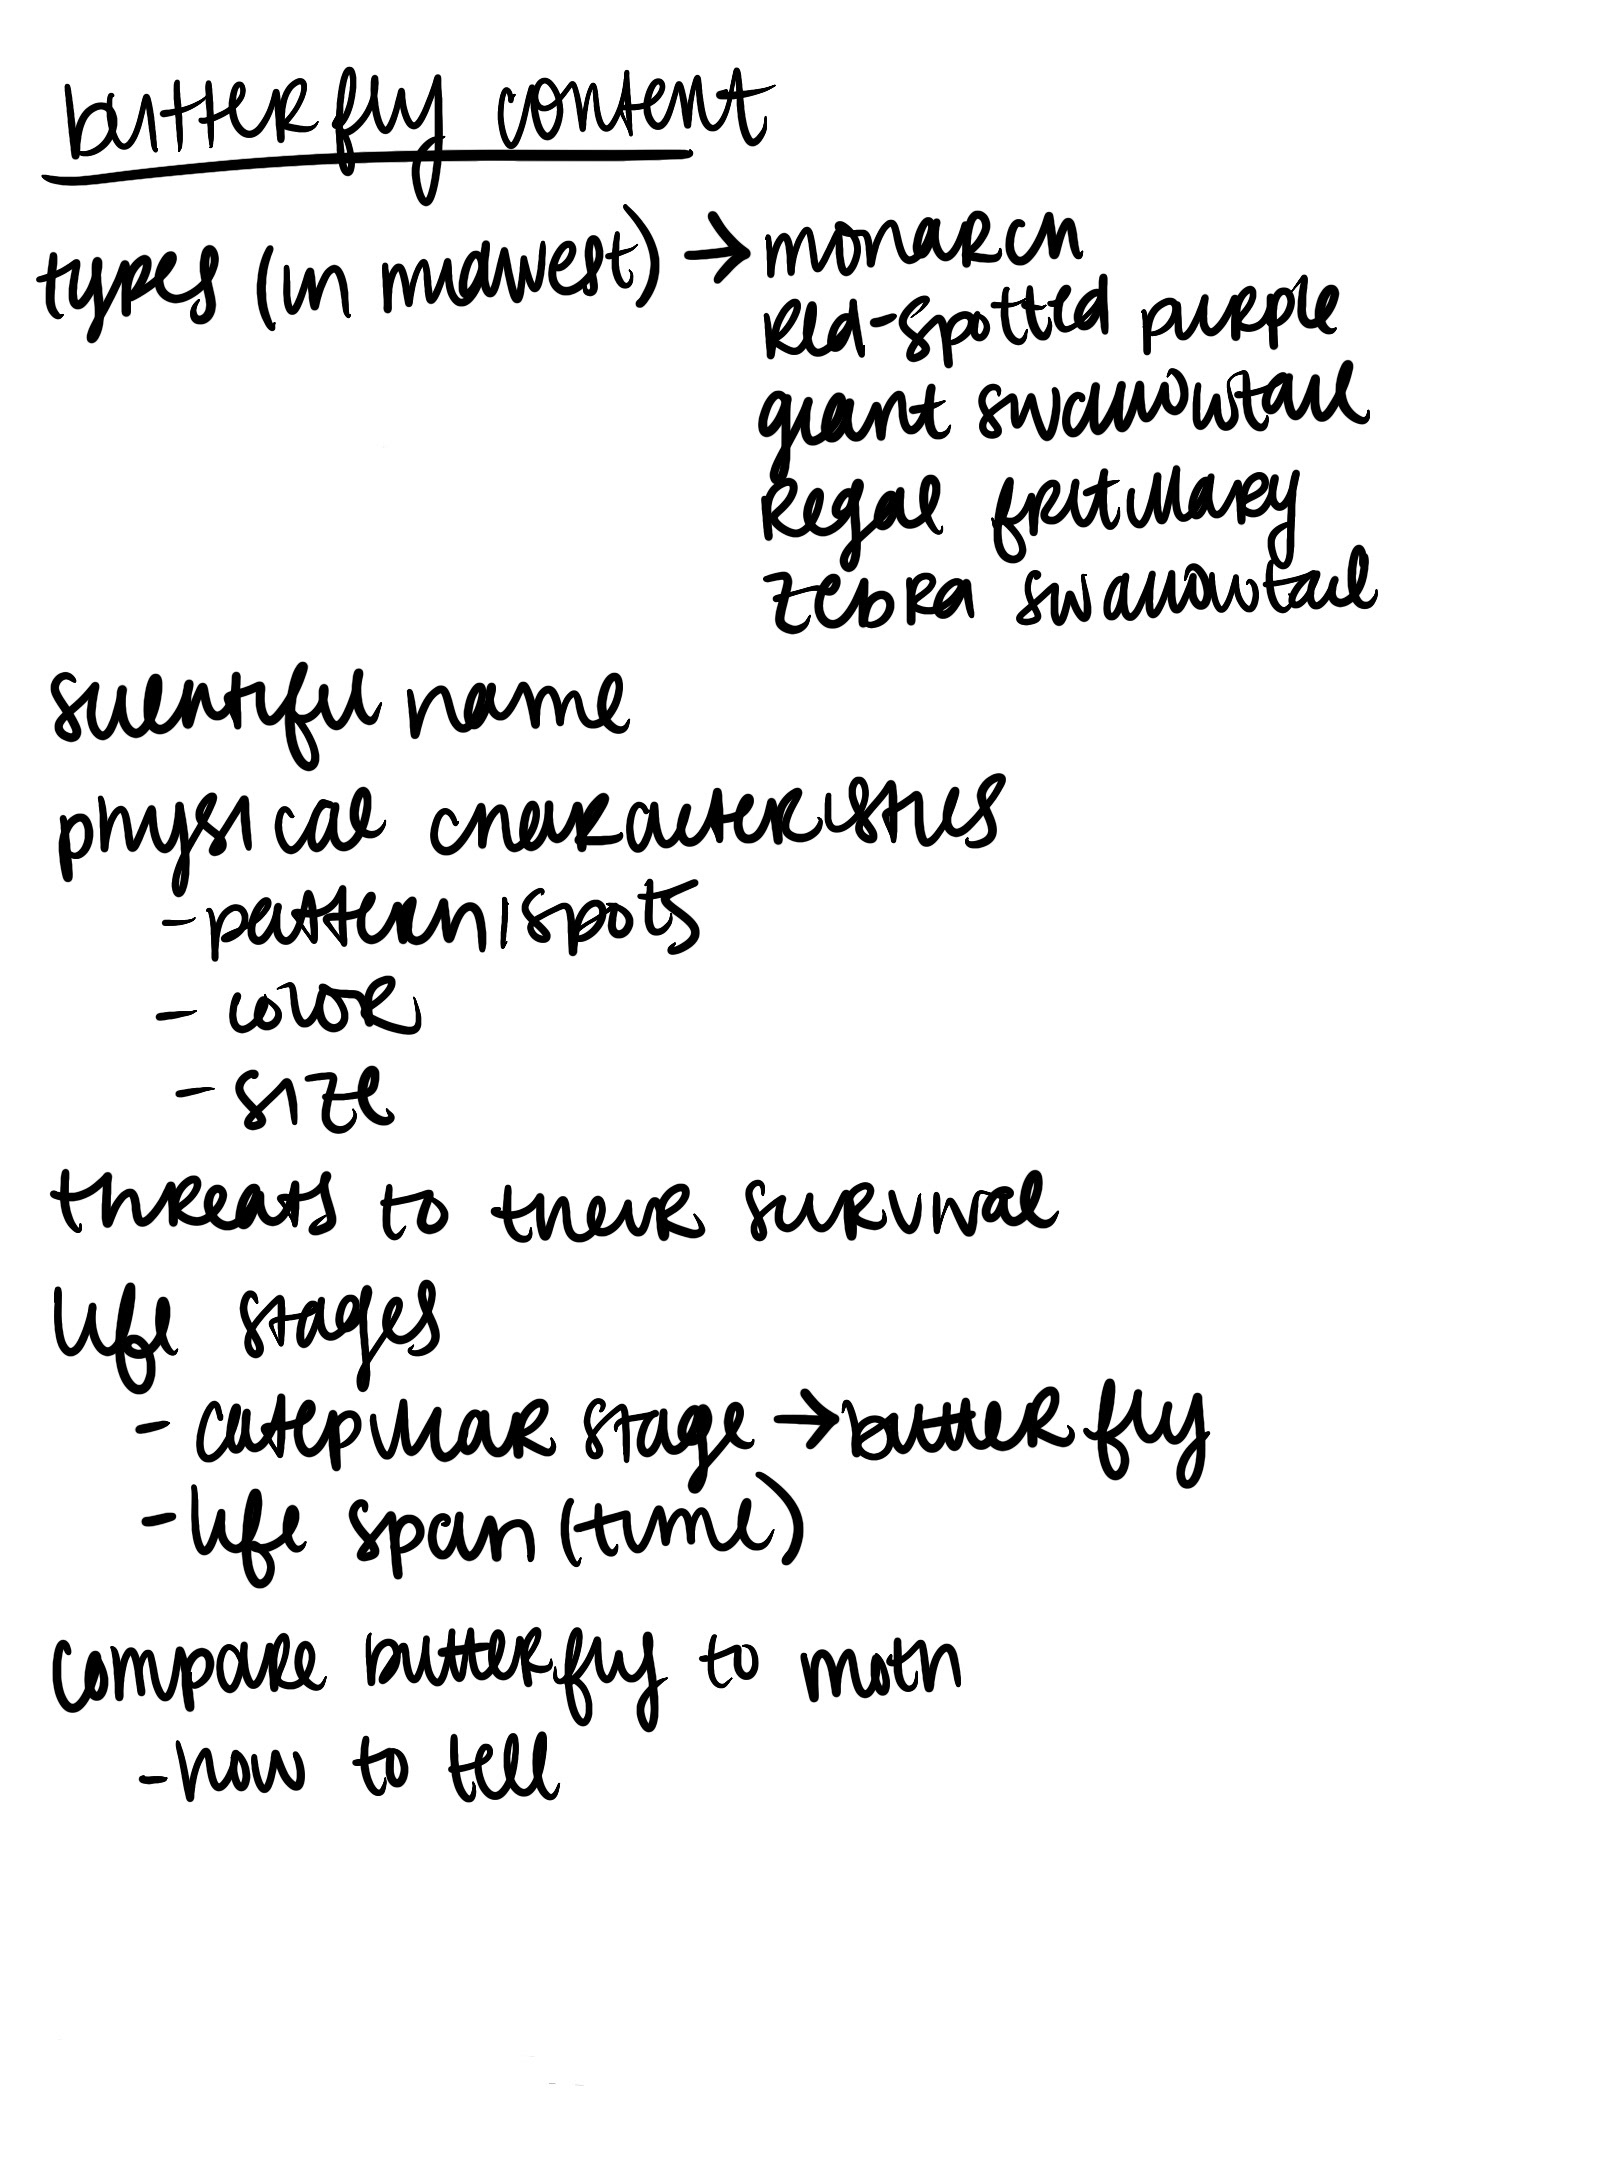 butterfly content
types (in midwest) → monarch
red-spotted purple
giant swallowtail
regal fritillary
zebra swallowtail
scientific name
physical characteristics
- pattern/spots
- color
- size
threats to their survival
life stages
- catepillar stage → butterfly
- life span (time)
compare butterfly to moth
- how to tell